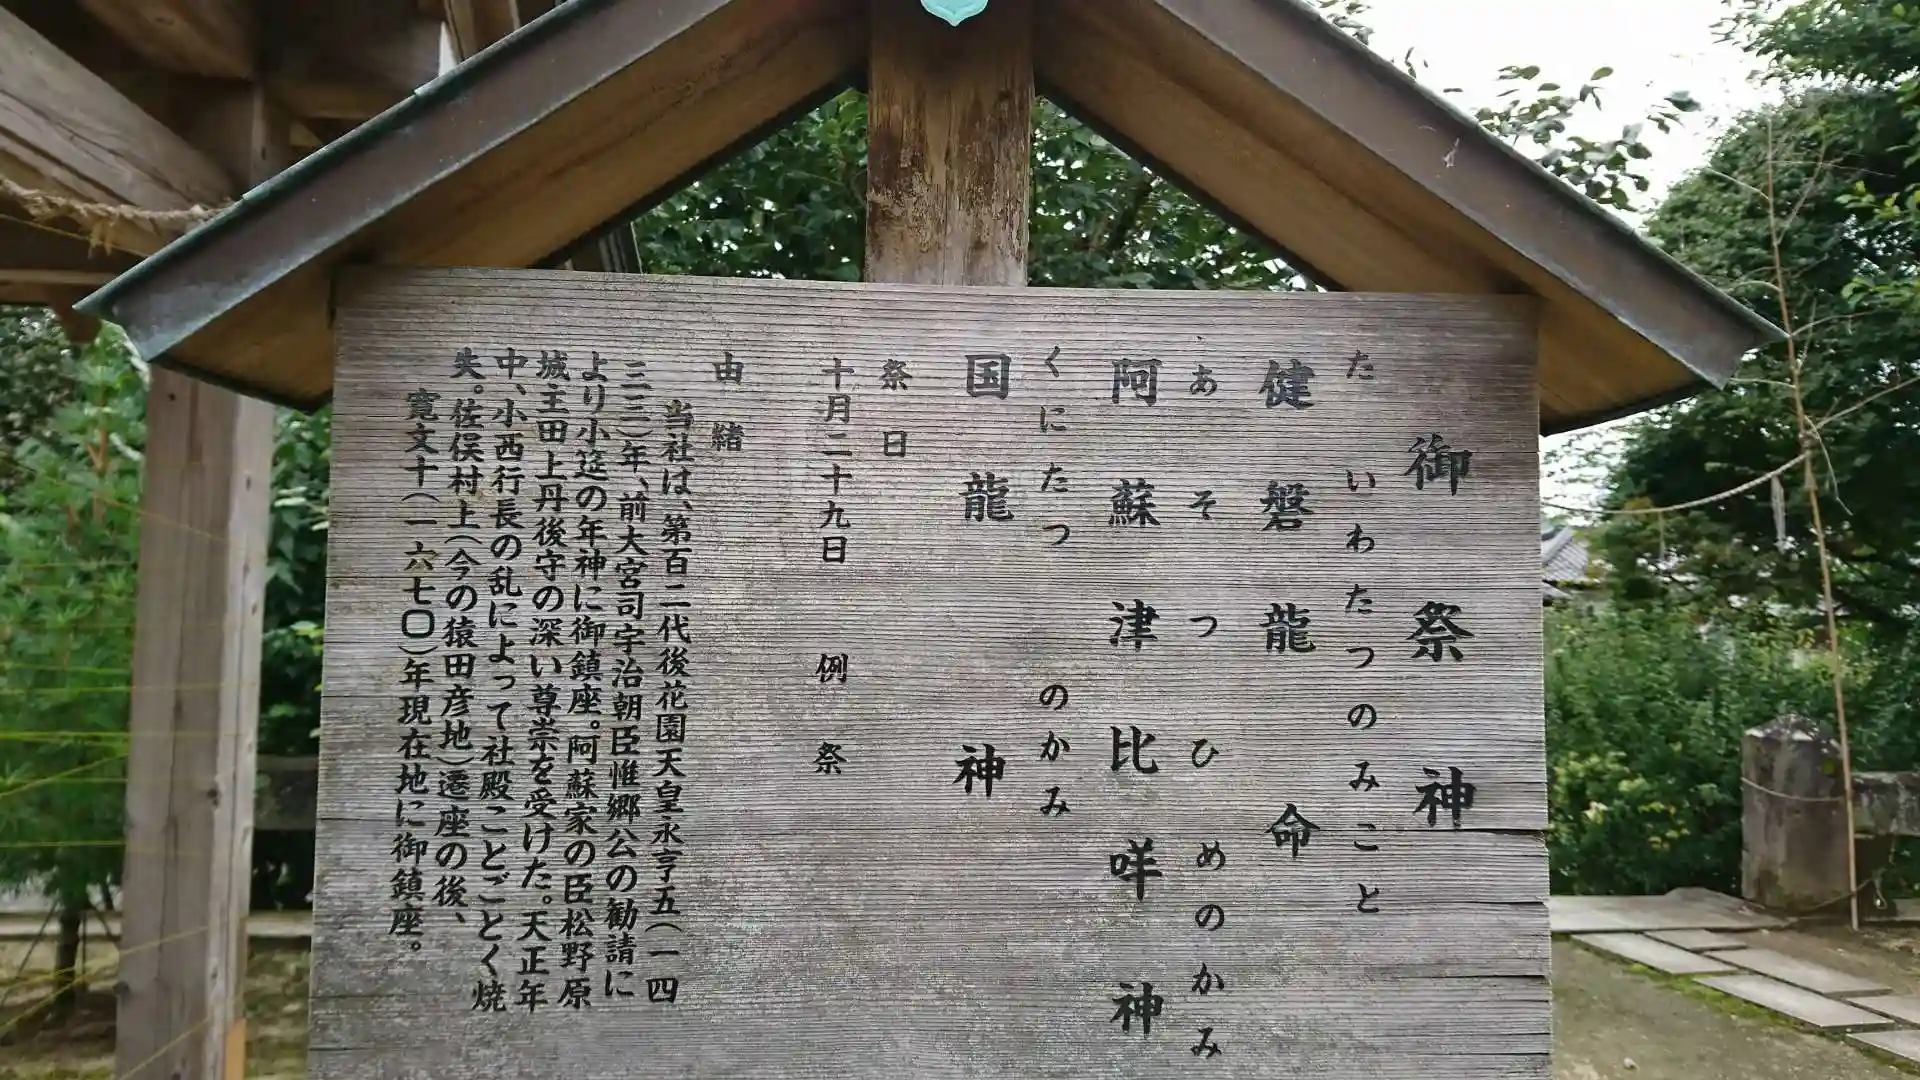 御祭神
たいわたつのみこと
健磐龍命
あそつひめのかみ
阿蘇津比咩神
くにたつのかみ
国龍神
祭日
十月二十九日 例祭
由緒
当社は、第百二代後花園天皇永亨五(一四
三三)年、前大宮司宇治朝臣惟郷公の勧請に
より小筵の年神に御鎮座。阿蘇家の臣松野原
城主田上丹後守の深い尊崇を受けた。天正年
中、小西行長の乱によって社殿ことごとく焼
失。佐俣村上(今の猿田彦地)遷座の後、
寛文十(一六七〇)年現在地に御鎮座。